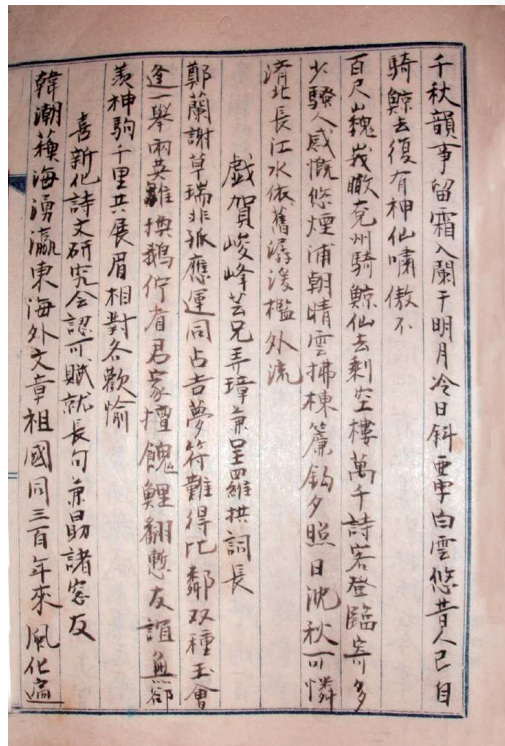 千秋韻事留霜入闌干明月冷日斜亜字白雲悠昔人已自
騎鯨去復有神仙嘯傲不
百尺巍峩瞰兗州騎鯨仙去剩空樓萬千詩客登臨寄多
少騷人感慨悠煙浦朝晴雲拂棟簾鈎夕照日沈秋可憐
濟北長江水依舊潺湲檻外流
戲賀峻峰芸兄弄璋兼呈羅拱詞長
鄭蘭謝草瑞非孤應運同占吉夢符難得比鄰双種玉會
逢一舉兩英雛換鵝佇看君家擅餽鯉翻慙友誼無卻
羨神駒千里共展眉相對各歡愉
喜新化詩文研究会認可賦就長句兼勗諸窓友
韓潮蘓海湧瀛東海外文章祖國同三百年來風化遍